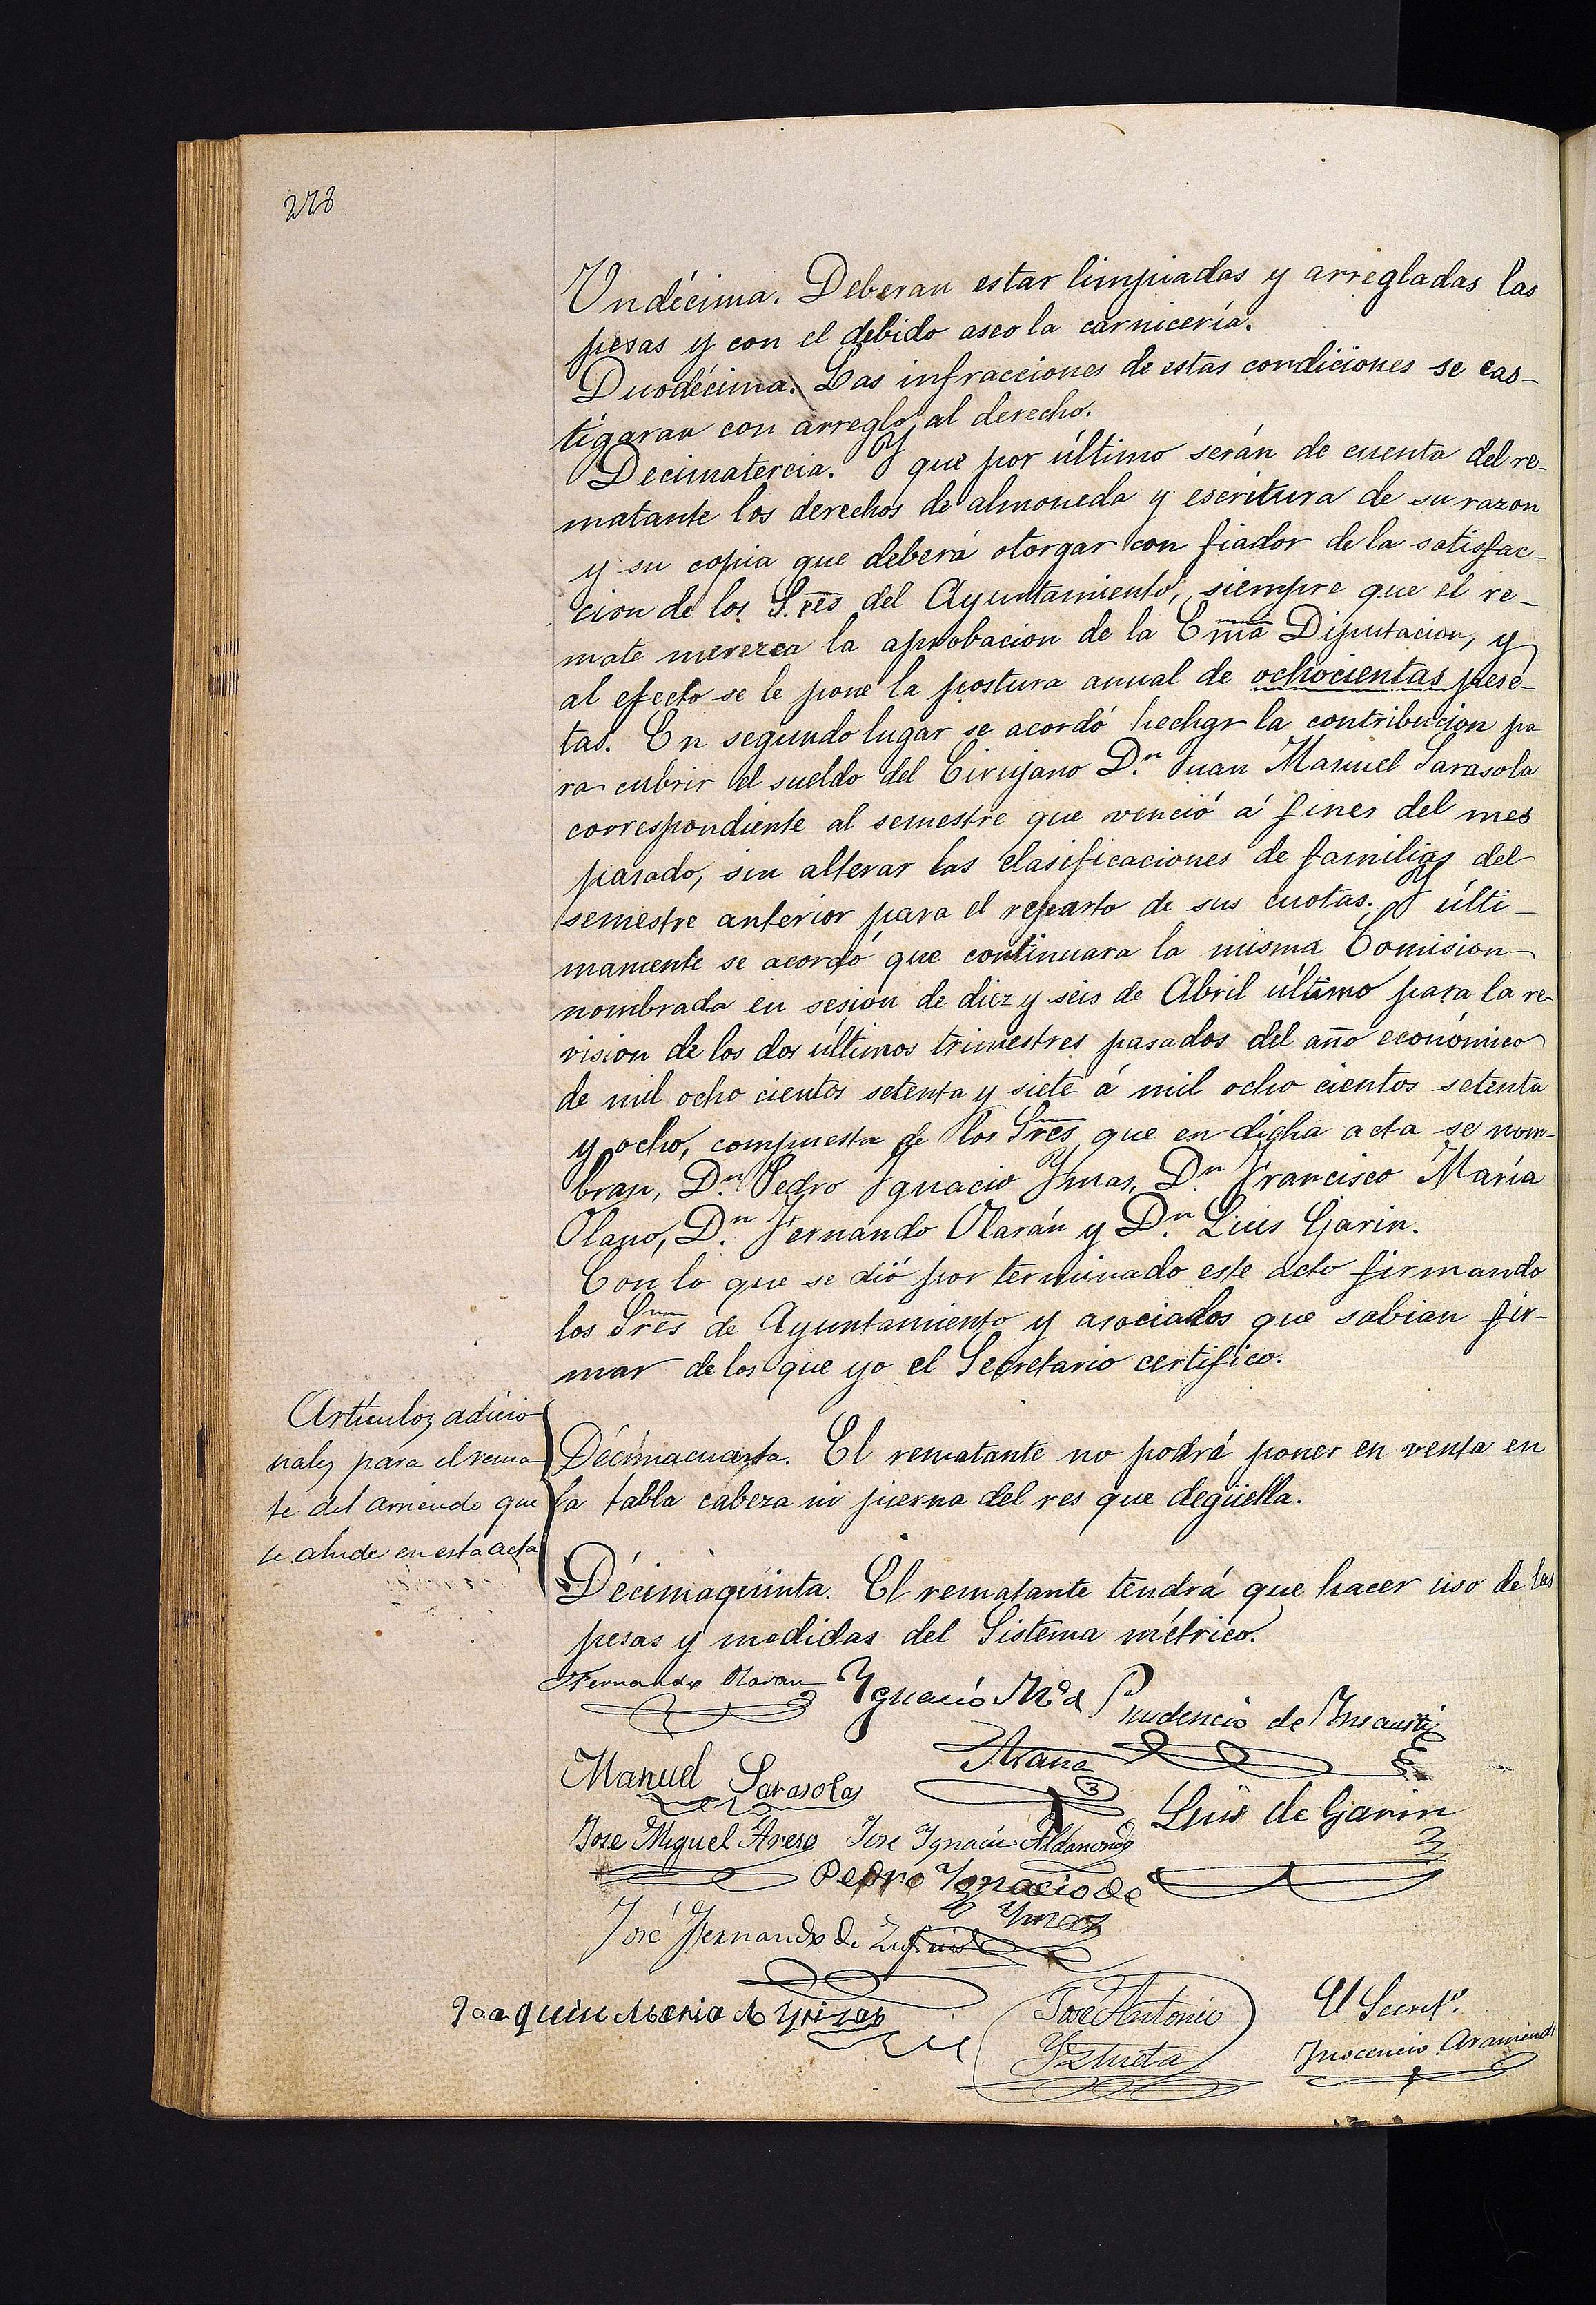 278
Undécima. Deberan estar limpiadas y arregladas las
pesas y con el debido aseo la carnicería.
Duodécima. Las infracciones de estas condiciones se cas-
tigaran con arreglo al derecho.
Decimatercia. Y que por último serán de cuenta del re-
matante los derechos de almoneda y escritura de su razon
y su copia que deberá otorgar con fiador de la satisfac-
cion de los S.res del Ayuntamiento, siempre que el re-
mate merezca la aprobacion de la Ema Diputacion, y
al efecto se le pone la postura anual de ochocientas pese-
tas. En segundo lugar se acordó hechar la contribucion pa
ra cubrir el sueldo del Cirujano D.n Juan Manuel Sarasola
correspondiente al semestre que venció á fines del mes
pasado, sin alterar las clasificaciones de familias del
semestre anterior para el reparto de sus cuotas. Y últi-
mamente se acordó que continuara la misma Comision
nombrada en sesion de diez y seis de Abril último para la re-
vision de los dos últimos trimestres pasados del año económico
de mil ocho cientos setenta y siete á mil ocho cientos setenta
y ocho, compuesta de los Sres que en dicha acta se nom-
bran, D.n Pedro Ignacio Ymas, D.n Francisco María
Olano, D.n Fernando Olarán y D.n Luis Garin.
Con lo que se dió por terminado este acto firmando
los Sres de Ayuntamiento y asociados que sabian fir-
mar de los que yo el Secretario certifico.
Artículos adicio
nales para el rema
te del arriendo que
se alude en esta acta
Décimacuarta. El rematante no podrá poner en venta en
la tabla cabeza ni pierna del res que degüella.
Décimaquinta. El rematante tendrá que hacer uso de las
pesas y medidas del Sistema métrico.
Fernando Olaran Ygnacio Ma Prudencio de Ynsausti
Arana
Manuel Sarasola
Luis de Garin
Jose Miguel Areso Jose Ygnacio
Pedro Ygnacio de
Ymaz
José Fernando de
Joaquin Maria de Yrizar
José Antonio
Yztueta
El Secret.o
Ynocencio Aramendi